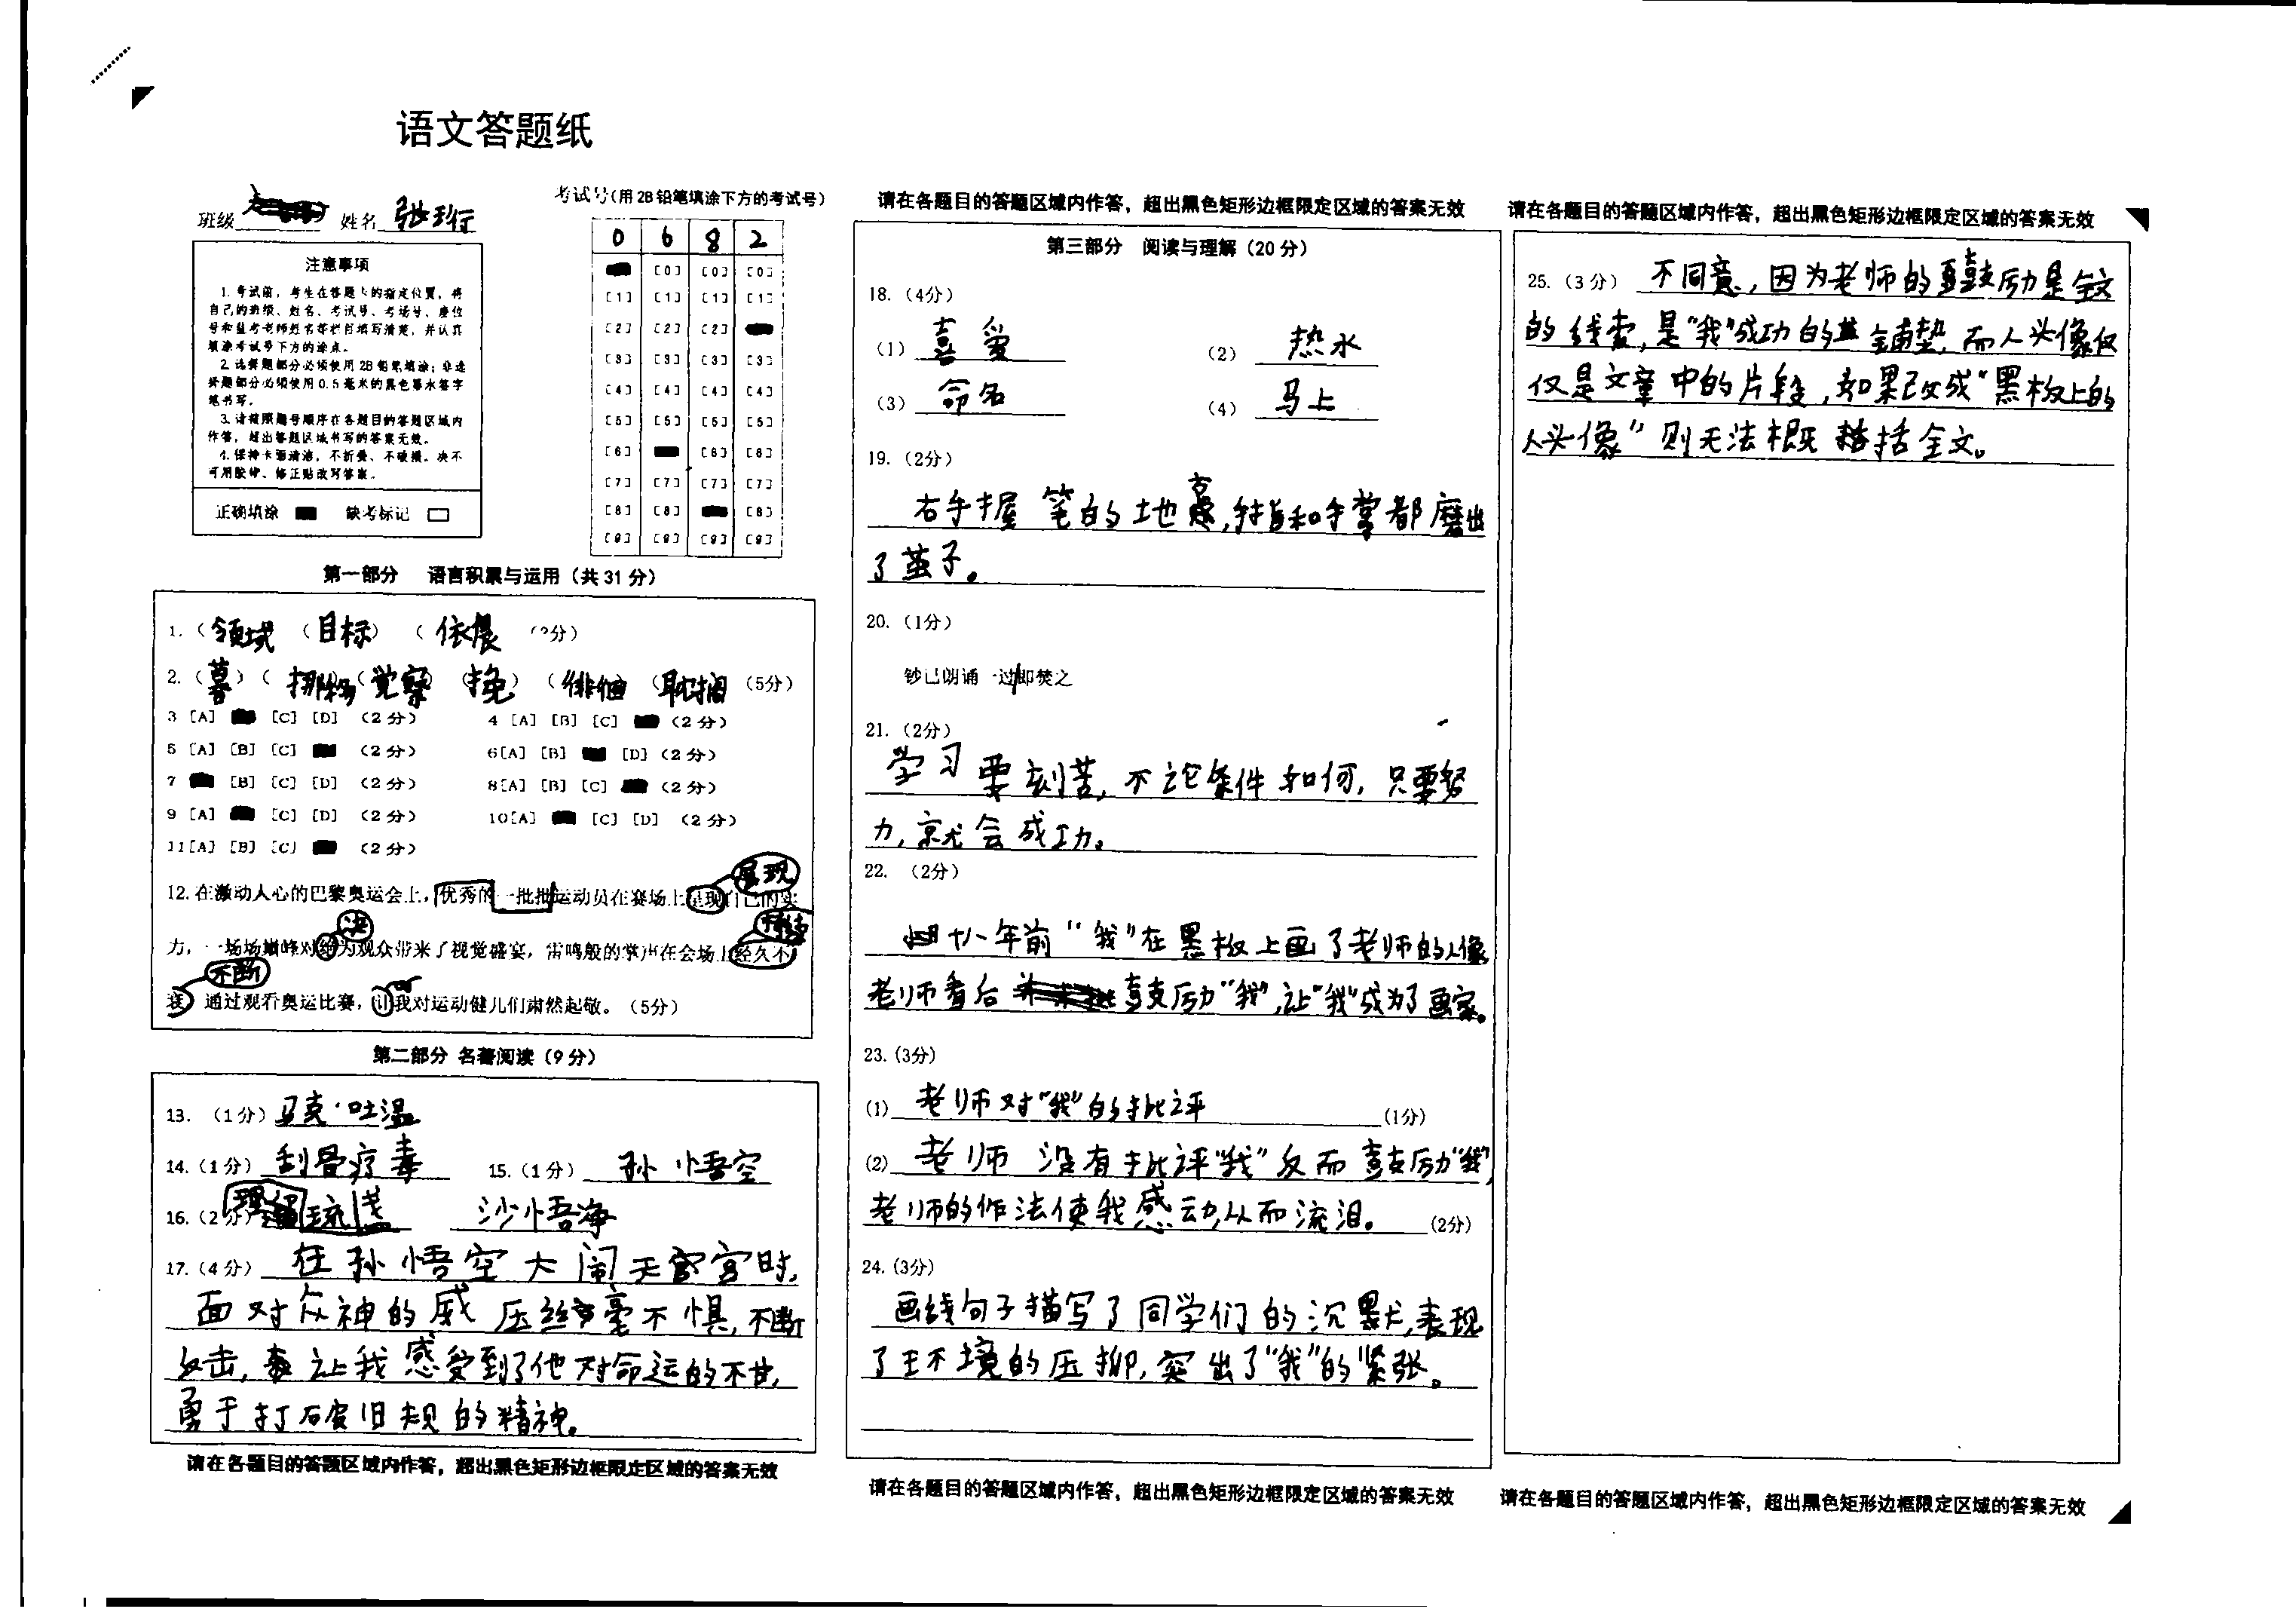 语文答题纸
班级 姓名 张珩
考试号(用2B铅笔填涂下方的考试号)
0 6 8 2
[0] [0] [0]
[1] [1] [1] [1]
[2] [2] [2]
[3] [3] [3] [3]
[4] [4] [4] [4]
[5] [5] [5] [5]
[6] [6] [6]
[7] [7] [7] [7]
[8] [8] [8]
[9] [9] [9] [9]
注意事项
1. 考试前,考生在答题卡的指定位置,将
自己的班级、姓名、考试号、考场号、座位
号和监考老师姓名等栏目填写清楚,并认真
填涂考试号下方的涂点。
2. 选择题部分必须使用2B铅笔填涂;非选
择题部分必须使用0.5毫米的黑色墨水签字
笔书写。
3. 请按照题号顺序在各题目的答题区域内
作答,超出答题区域书写的答案无效。
4. 保持卡面清洁,不折叠、不破损。决不
可用胶带、修正贴改写答案。
正确填涂 缺考标记
第一部分 语言积累与运用(共31分)
1.(领域(目标)(依偎
2.(暮)( 挪(觉察(挽)(徘徊(耽搁(5分)
3 [A] [C] [D] (2分) 4 [A] [B] [C] (2分)
5 [A] [B] [C] (2分) 6[A] [B] [D] (2分)
7 [B] [C] [D] (2分) 8[A] [B] [C] (2分)
9 [A] [C] [D] (2分) 10[A] [C] [D] (2分)
11[A] [B] [C] (2分)
展现
12.在激动人心的巴黎奥运会上,优秀的一批批运动员在赛场上呈现自己的实
决 持续
力,一场场巅峰对绝为观众带来了视觉盛宴,雷鸣般的掌声在会场上经久不
不断
衰 通过观看奥运比赛,让我对运动健儿们肃然起敬。(5分)
第二部分 名著阅读(9分)
13. (1分) 马克·吐温
14.(1分) 刮骨疗毒 15.(1分) 孙悟空
16.(2分) 沙悟净
17.(4分) 在孙悟空大闹天宫时,
面对众神的威压丝毫不惧,不断
反击,让我感受到了他对命运的不甘,
勇于打破旧规的精神。
请在各题目的答题区域内作答,超出黑色矩形边框限定区域的答案无效
请在各题目的答题区域内作答,超出黑色矩形边框限定区域的答案无效
第三部分 阅读与理解(20分)
18.(4分)
(1) 喜爱 (2) 热水
(3) 命名 (4) 马上
19.(2分)
右手握笔的地方,手指和手掌都磨出
了茧子。
20.(1分)
钞已朗诵一过/即焚之
21.(2分)
学习要刻苦,不论条件如何,只要努
力,就会成功。
22. (2分)
十八年前“我”在黑板上画了老师的人像
老师看后鼓励“我”,让“我”成为了画家。
23.(3分)
(1) 老师对“我”的批评 (1分)
(2) 老师没有批评“我”反而鼓励“我”,
老师的作法使我感动,从而流泪。 (2分)
24.(3分)
画线句子描写了同学们的沉默,表现
了环境的压抑,突出了“我”的紧张。
请在各题目的答题区域内作答,超出黑色矩形边框限定区域的答案无效
请在各题目的答题区域内作答,超出黑色矩形边框限定区域的答案无效
25.(3分) 不同意,因为老师的鼓励是全文
的线索,是“我”成功的铺垫,而人头像仅
仅是文章中的片段,如果改成“黑板上的
人头像”则无法概括全文。
请在各题目的答题区域内作答,超出黑色矩形边框限定区域的答案无效